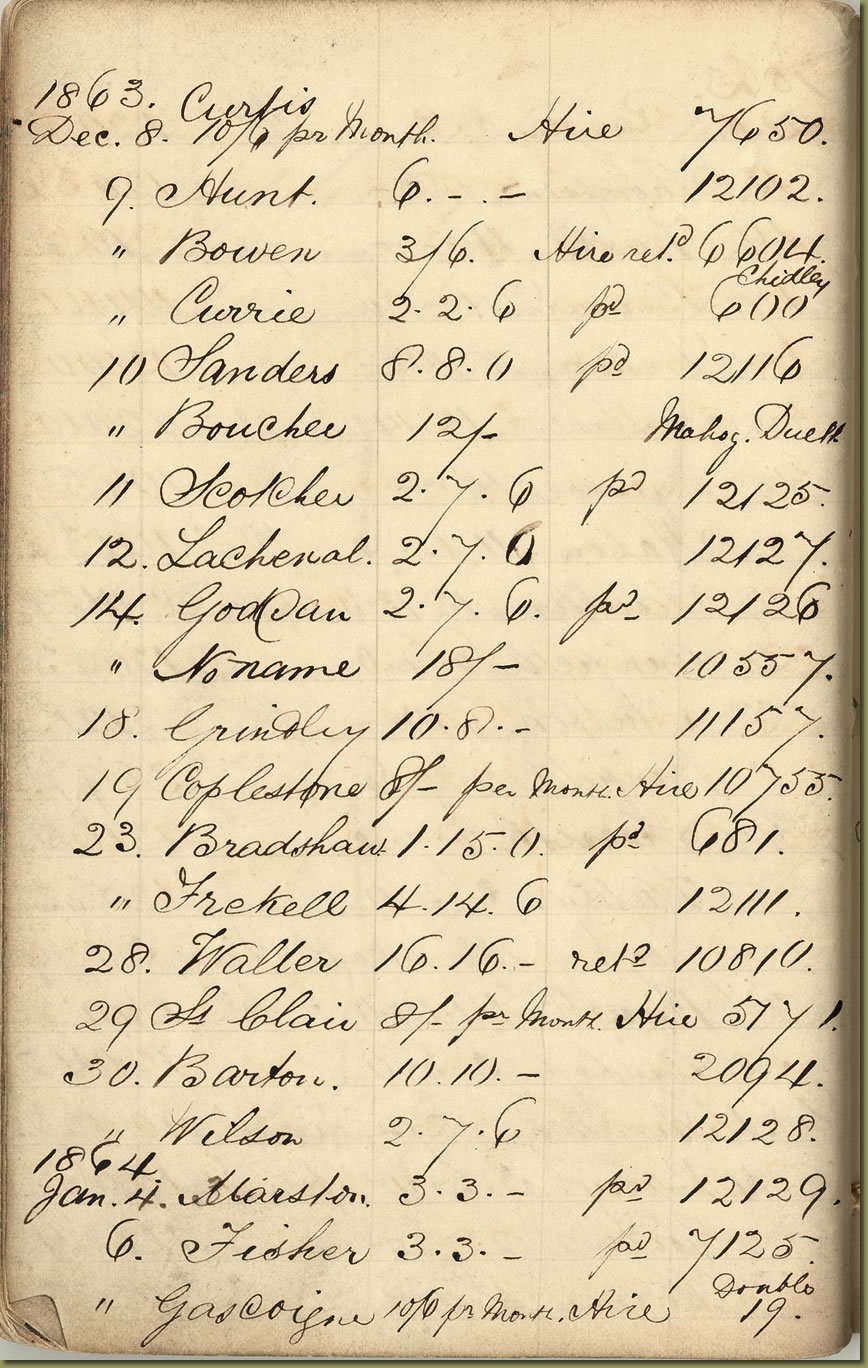 1863. Curtis
Dec. 8. 10/6 pr Month. Hire 7650.
9. Hunt. 6. - . - 12102.
" Bowen 3/6. Hire ret.d 6604.
Chidley
" Currie 2. 2. 6 pd 600
10 Sanders 8. 8. 0 pd 12116
" Boucher 12/- Mahog. Duett
11 Scotcher 2. 7. 6 pd 12125.
12. Lachenal. 2. 7. 0 12127.
14. Goddau 2. 7. 6. pd 12126
" No name 18/- 10557.
18. Grindley 10. 8. - 11157.
19 Coplestone 8/- per Month. Hire 10755.
23. Bradshaw. 1. 15. 0. pd 681.
" Frekell 4. 14. 6 12111.
28. Waller 16. 16. - retd 10810.
29 St Clair 8/- pr Month. Hire 5171.
30. Barton. 10. 10. - 2094.
" Wilson 2. 7. 6 12128.
1864
Jan. 4. Marston. 3. 3. - pd 12129.
6. Fisher 3. 3. - pd 7125.
Double
" Gascoigne 10/6 pr Month. Hire 19.